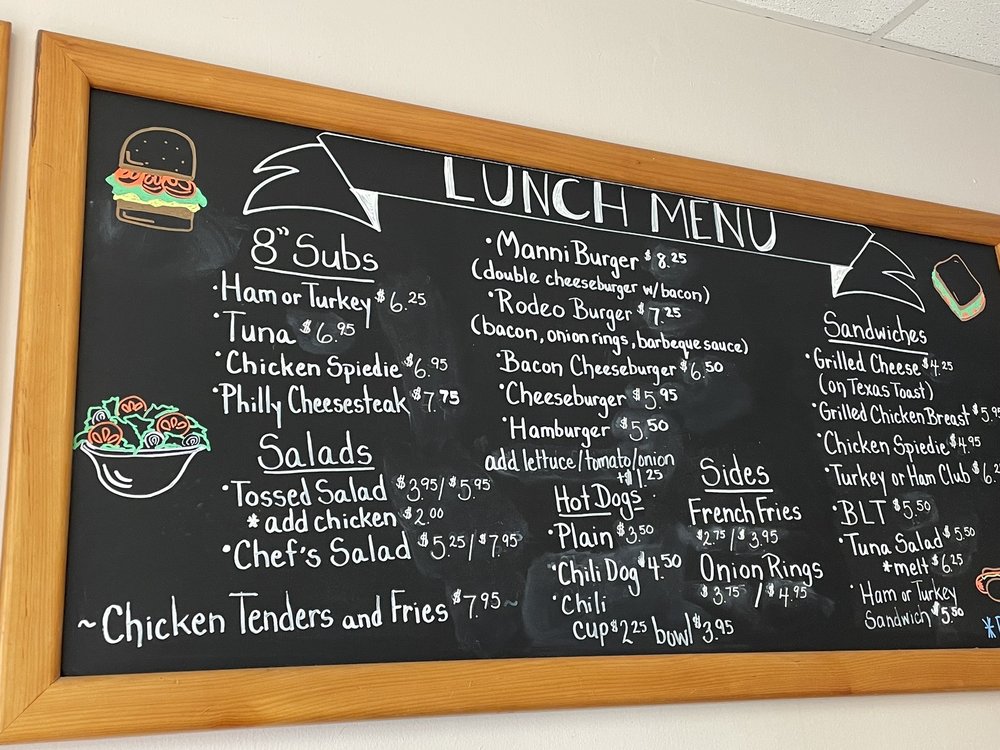 LUNCH MENU
8" Subs
·Ham or Turkey $6.25
·Tuna $6.95
·Chicken Spiedie $6.95
·Philly Cheesesteak $7.75
Salads
·Tossed Salad $3.95/$5.95
*add chicken $2.00
·Chef's Salad $5.25/$7.95
~Chicken Tenders and Fries $7.95~
·Manni Burger $8.25
(double cheeseburger w/bacon)
·Rodeo Burger $7.25
(bacon, onion rings, barbeque sauce)
·Bacon Cheeseburger $6.50
·Cheeseburger $5.95
·Hamburger $5.50
add lettuce/tomato/onion
+$1.25
Hot Dogs
·Plain $3.50
·Chili Dog $4.50
·Chili
cup $2.25 bowl $3.95
Sides
French Fries
$2.75/$3.95
Onion Rings
$3.75/$4.95
Sandwiches
·Grilled Cheese $4.25
(on Texas Toast)
·Grilled Chicken Breast $5.95
·Chicken Spiedie $4.95
·Turkey or Ham Club $6.2
·BLT $5.50
·Tuna Salad $5.50
*melt $6.25
·Ham or Turkey
Sandwich $5.50